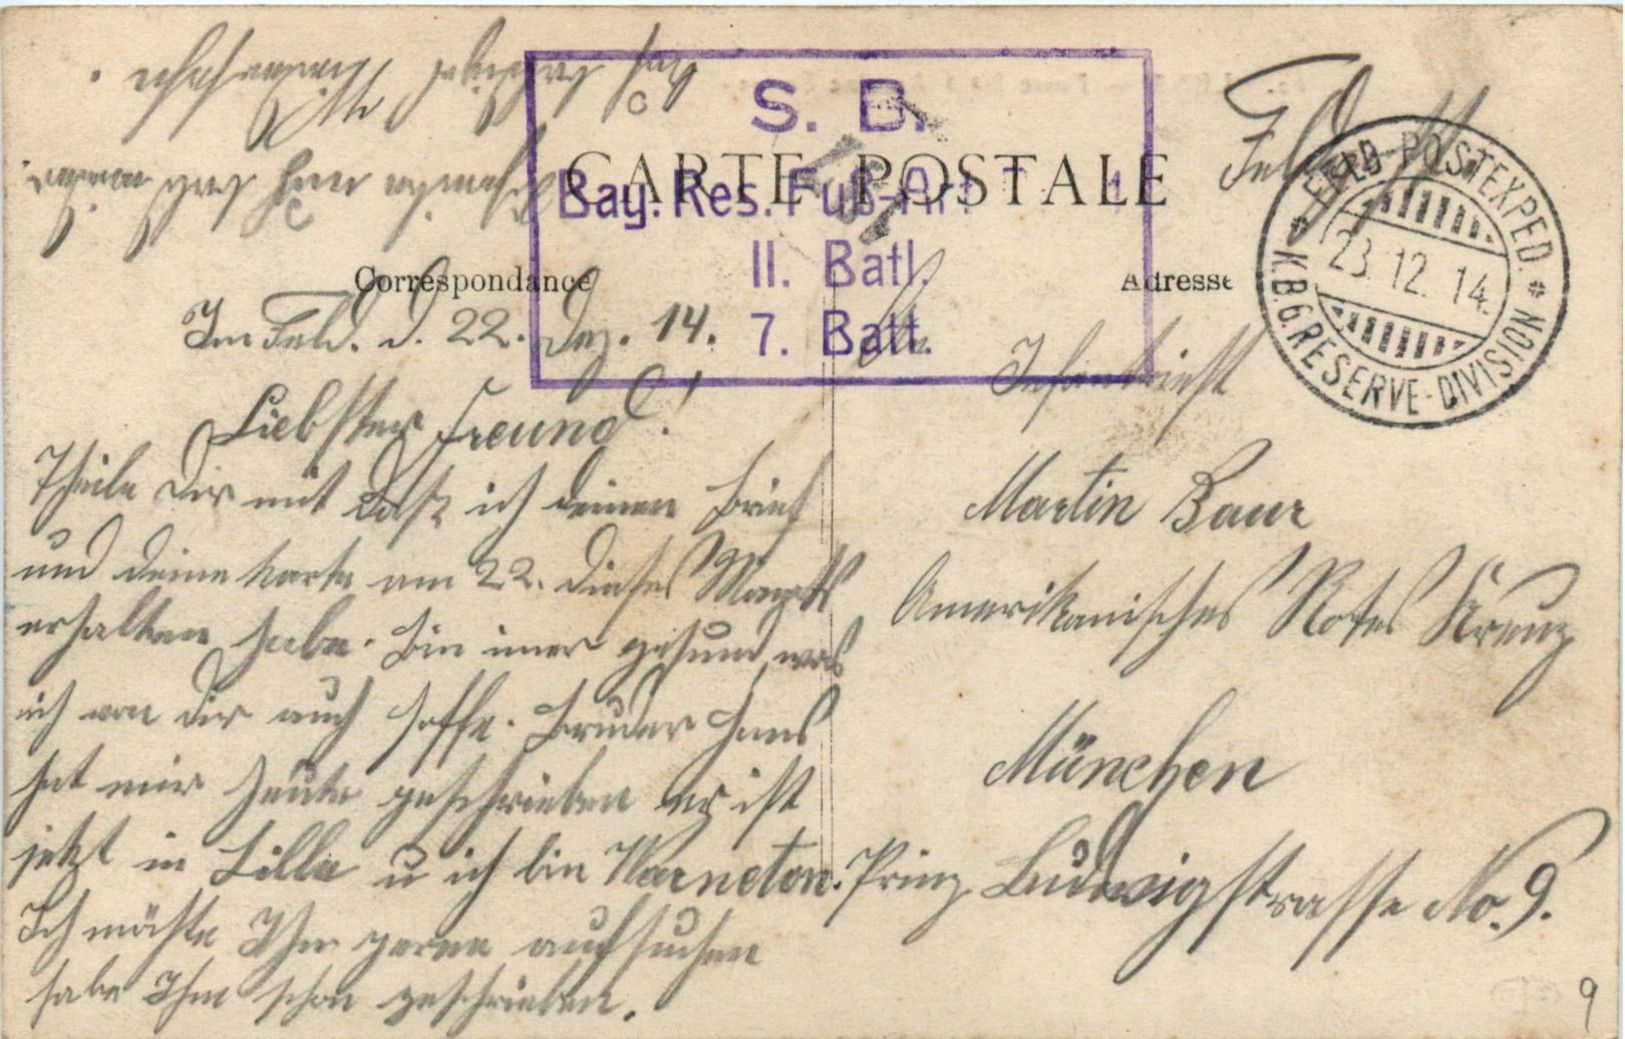 S. B.
CARTE POSTALE
Bay. Res. Fuß-Art
II. Batl.
7. Batt.
Correspondance
Adresse
FELD POSTEXPED.
23.12.14.
K.B.6.RESERVE-DIVISION
Im Feld. d. 22. Dez. 14.
Liebster Freund!
Theile Dir mit Daß ich deinen Brief
und deine Karte am 22. dieses
erhalten habe. Bin imer gesund, was
ich von Dir auch hoffe. Bruder Hans
hat mir heute geschrieben er ist
jetzt in Lille u ich bin Warneton.
Ich möchte Ihm gerne aufsuchen
habe Ihm schon geschrieben.
An
Infanterist
Martin Baur
Amerikanisches Rotes Kreuz
München
Prinz Ludwigstrasse No. 9.
9